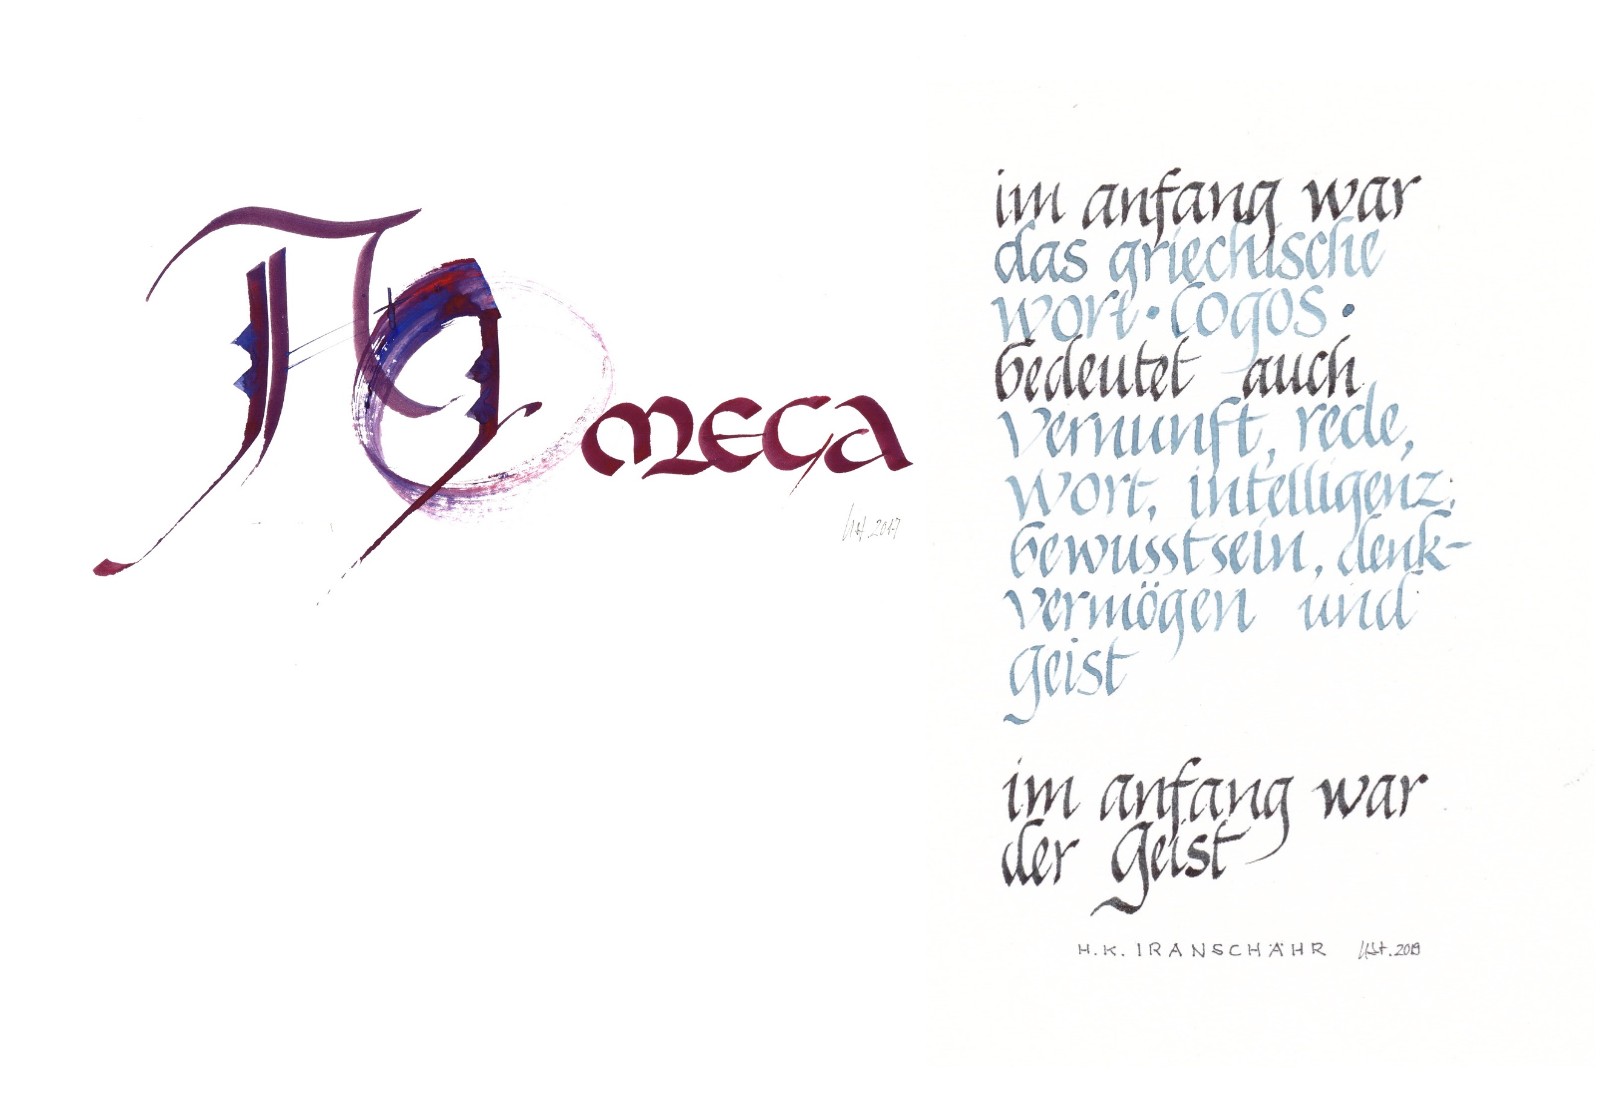 omega
2017
im anfang war
das griechische
wort • logos •
bedeutet auch
vernunft, rede,
wort, intelligenz,
bewusstsein, denk-
vermögen und
geist
im anfang war
der geist
H.K. IRANSCHÄHR 2019